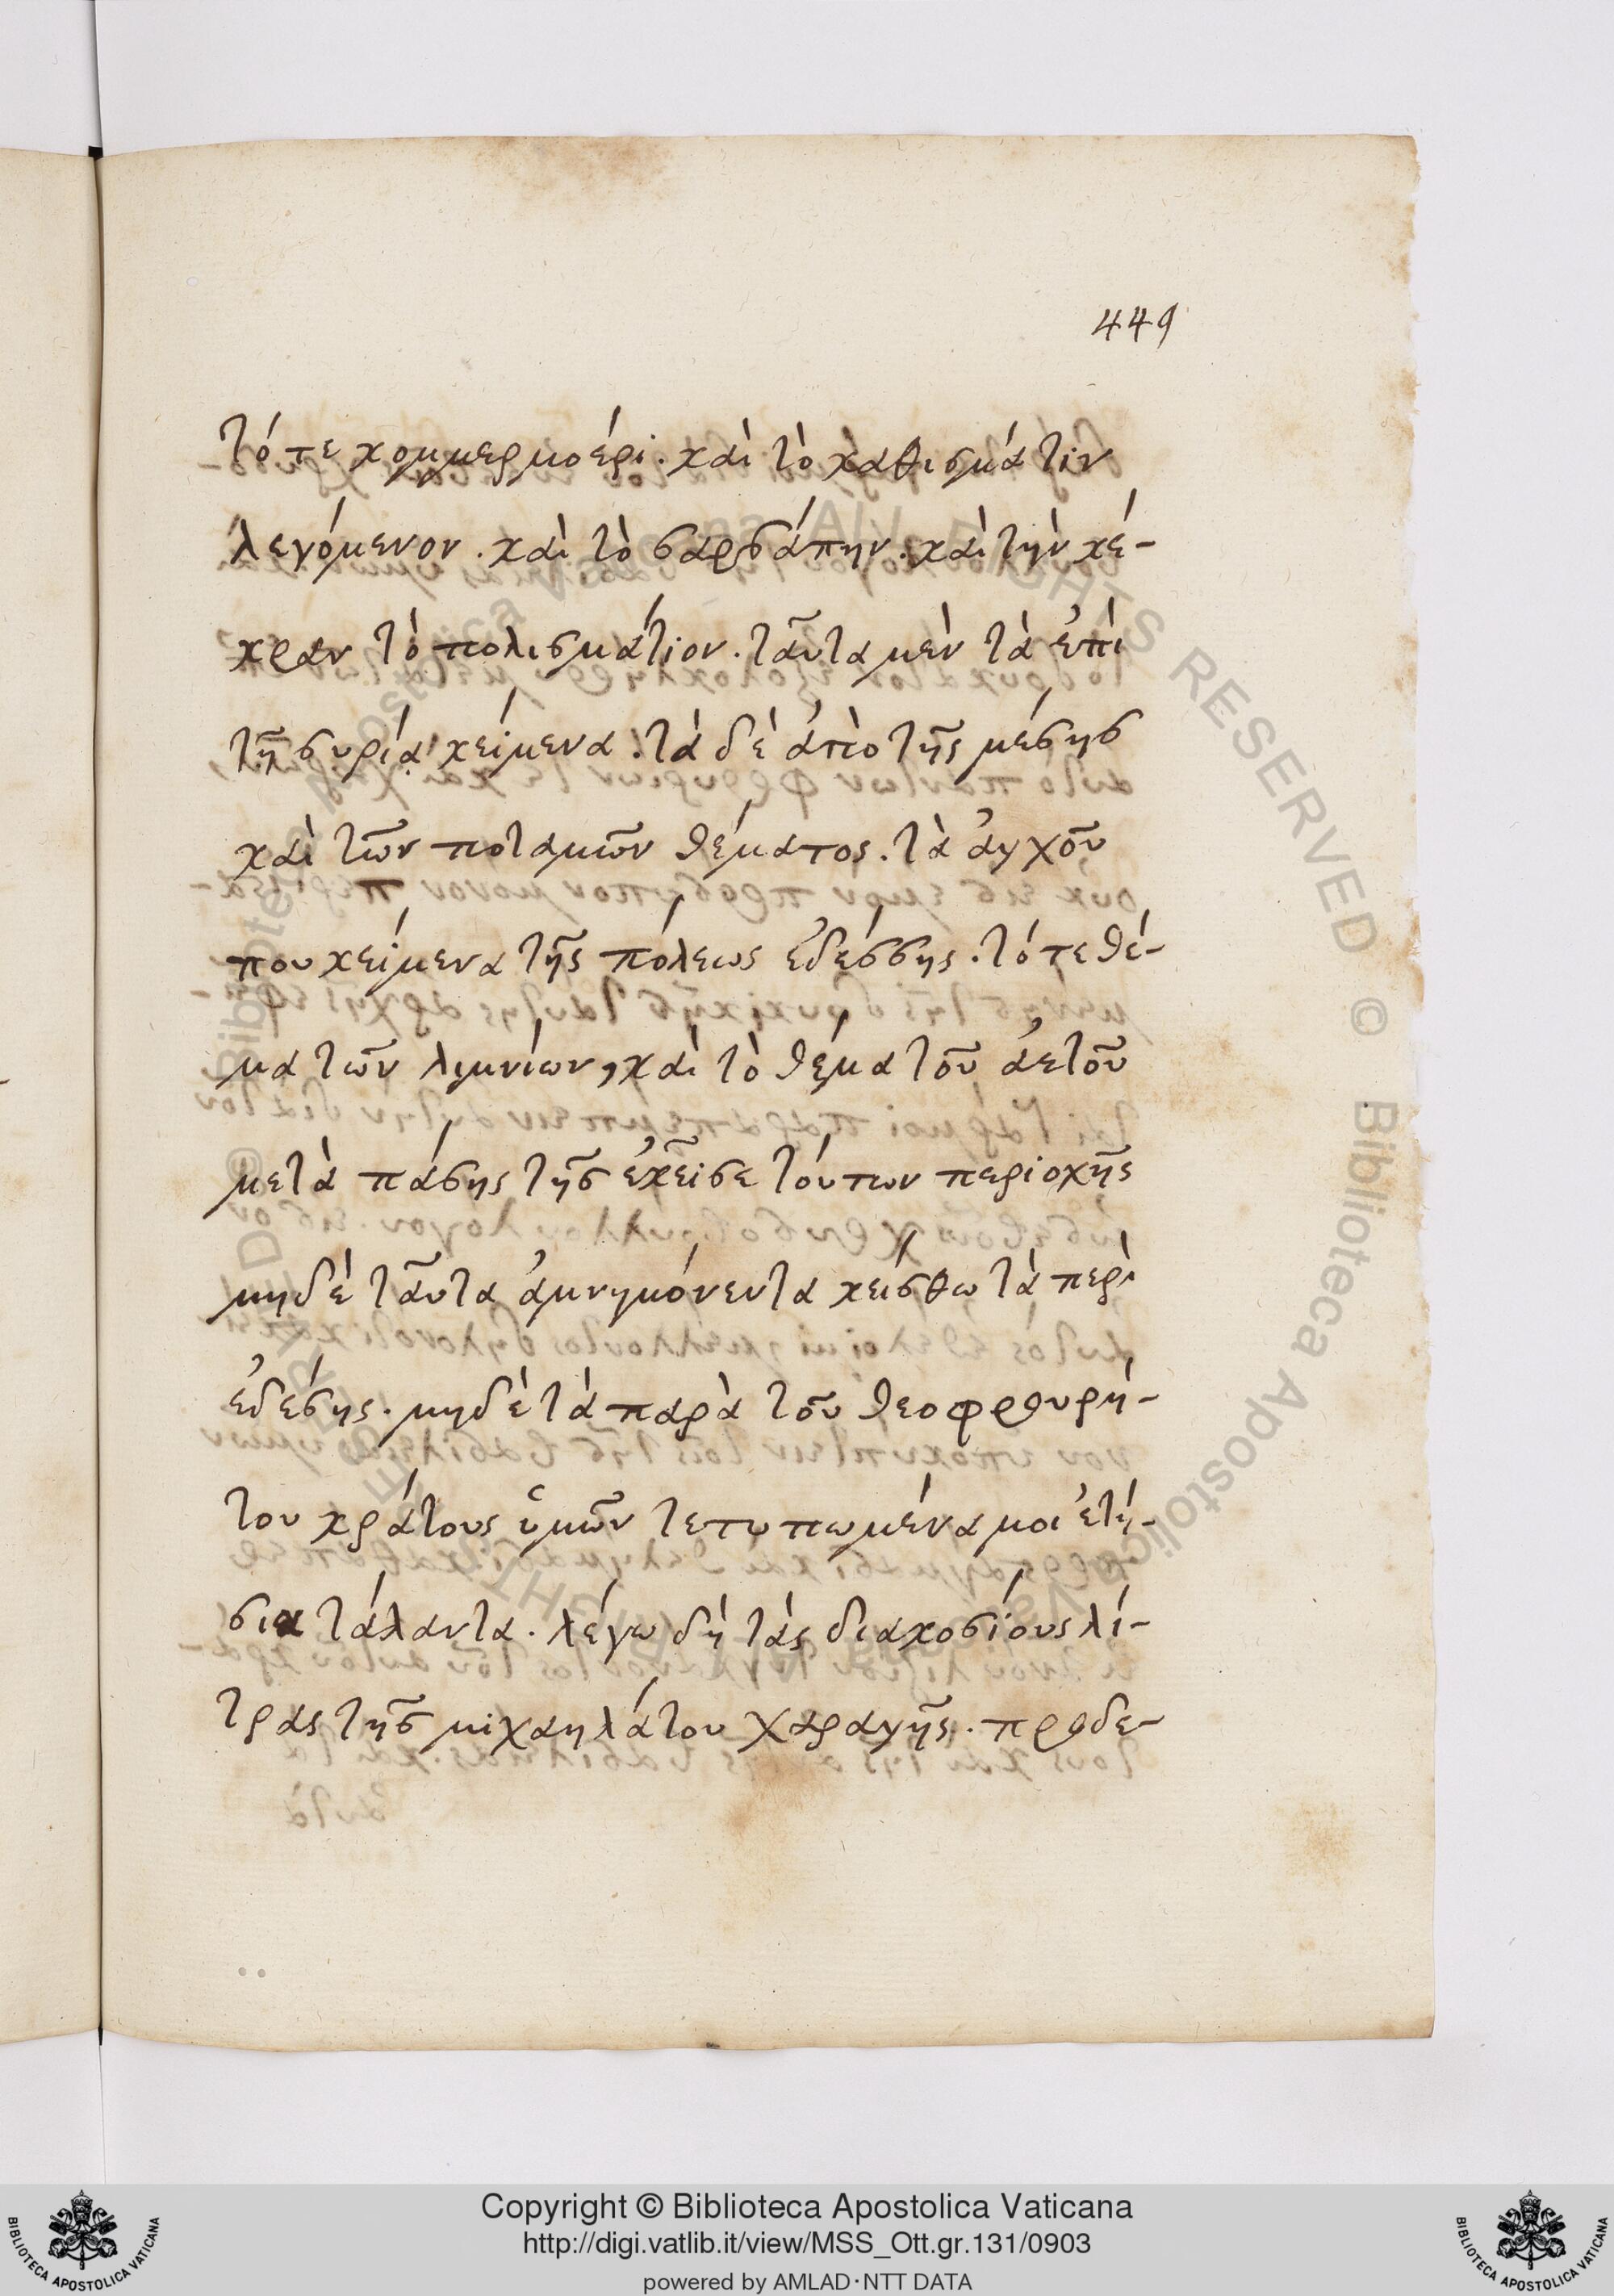 449
τότε κομμερμοέρι. καὶ τὸ καθισμάτιν
λεγόμενον. καὶ τὸ σαρσάπην. καὶ τὴν χέ-
κραν τὸ πολισμάτιον. ταῦτα μὲν τὰ ἐπὶ
τῇ συρίᾳ κείμενα. τὰ δὲ ἀπὸ τῆς μέσης
καὶ τῶν ποταμῶν θέματος. τὰ ἀγχοῦ
που κείμενα τῆς πόλεως ἐδέσσης. τό τε θέ-
μα τῶν λιμνίων, καὶ τὸ θέμα τοῦ ἀετοῦ
μετὰ πάσης τῆς ἐκεῖσε τόυτων περιοχῆς
μηδὲ ταῦτα ἀμνημόνευτα κείσθω τὰ περὶ
ἐδέσης. μηδὲ τὰ παρὰ τοῦ θεοφρουρή-
του κράτους ὑμῶν τετυπωμένα μοι ἐτή-
σια τάλαντα. λέγω δὴ τὰς διακοσίους λί-
τρας τῆς μιχαηλάτου χαραγῆς. προδε-
Copyright © Biblioteca Apostolica Vaticana
http://digi.vatlib.it/view/MSS_Ott.gr.131/0903
powered by AMLAD·NTT DATA
BIBLIOTECA APOSTOLICA VATICANA
BIBLIOTECA APOSTOLICA VATICANA